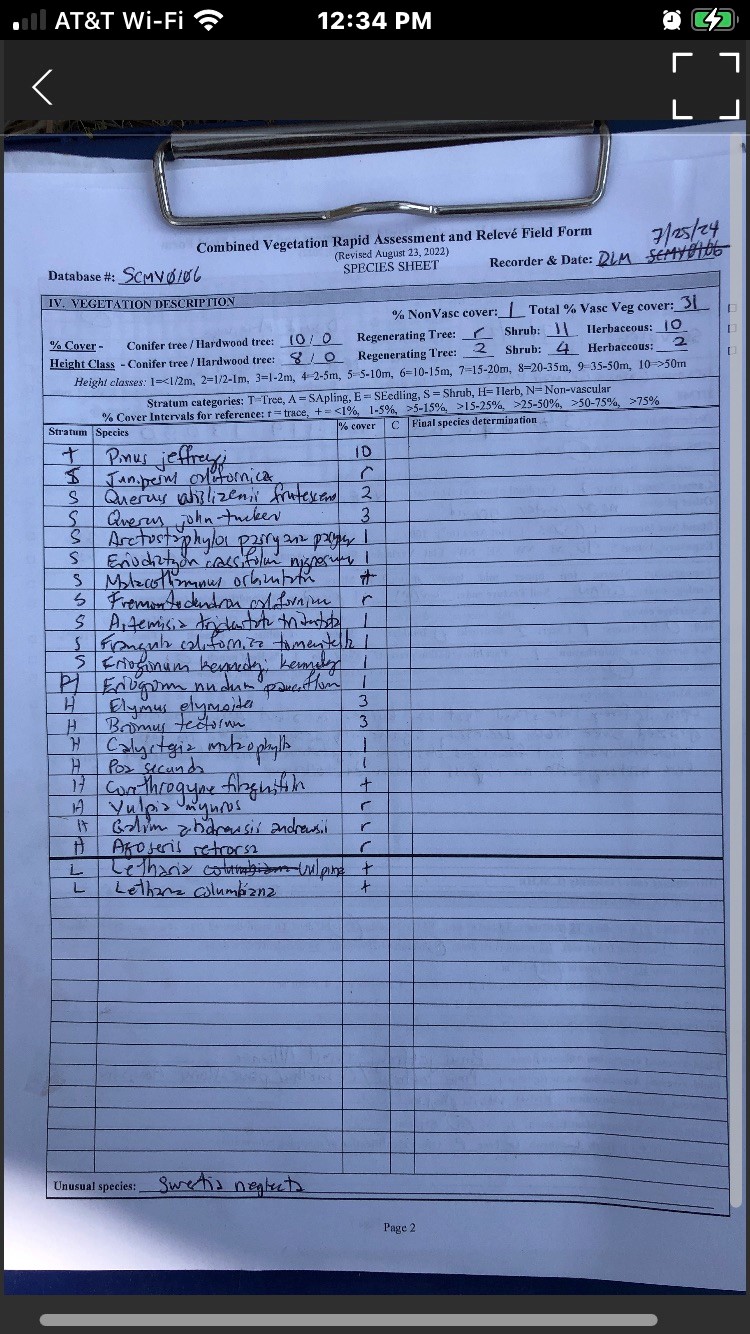 AT&T Wi-Fi 12:34 PM
Combined Vegetation Rapid Assessment and Relevé Field Form
(Revised August 23, 2022)
SPECIES SHEET
7/25/24
Database #: SCMV0106 Recorder & Date: DLM SCMV0106
IV. VEGETATION DESCRIPTION
% NonVasc cover: 1 Total % Vasc Veg cover: 31
% Cover - Conifer tree / Hardwood tree: 10 / 0 Regenerating Tree: r Shrub: 11 Herbaceous: 10
Height Class - Conifer tree / Hardwood tree: 8 / 0 Regenerating Tree: 2 Shrub: 4 Herbaceous: 2
Height classes: 1=<1/2m, 2=1/2-1m, 3=1-2m, 4=2-5m, 5=5-10m, 6=10-15m, 7=15-20m, 8=20-35m, 9=35-50m, 10=>50m
Stratum categories: T=Tree, A = SApling, E = SEedling, S = Shrub, H= Herb, N= Non-vascular
% Cover Intervals for reference: r = trace, + = <1%, 1-5%, >5-15%, >15-25%, >25-50%, >50-75%, >75%
Stratum Species % cover C Final species determination
T Pinus jeffreyi 10
S Juniperus californica r
S Quercus wislizenii frutescens 2
S Quercus john-tuckeri 3
S Arctostaphylos parryana 1
S Eriodictyon crassifolium nigrescens 1
S Malacothamnus orbiculatus +
S Fremontodendron californicum r
S Artemisia tridentata tridentata 1
S Frangula californica tomentella 1
S Eriogonum kennedyi kennedyi 1
H Eriogonum nudum pauciflorum 1
H Elymus elymoides 3
H Bromus tectorum 3
H Calystegia malacophylla 1
H Poa secunda 1
H Corethrogyne filaginifolia +
H Vulpia myuros r
H Galium andrewsii andrewsii r
H Agoseris retrorsa r
L Letharia columbiana vulpina +
L Letharia columbiana +
Unusual species: Swertia neglecta
Page 2